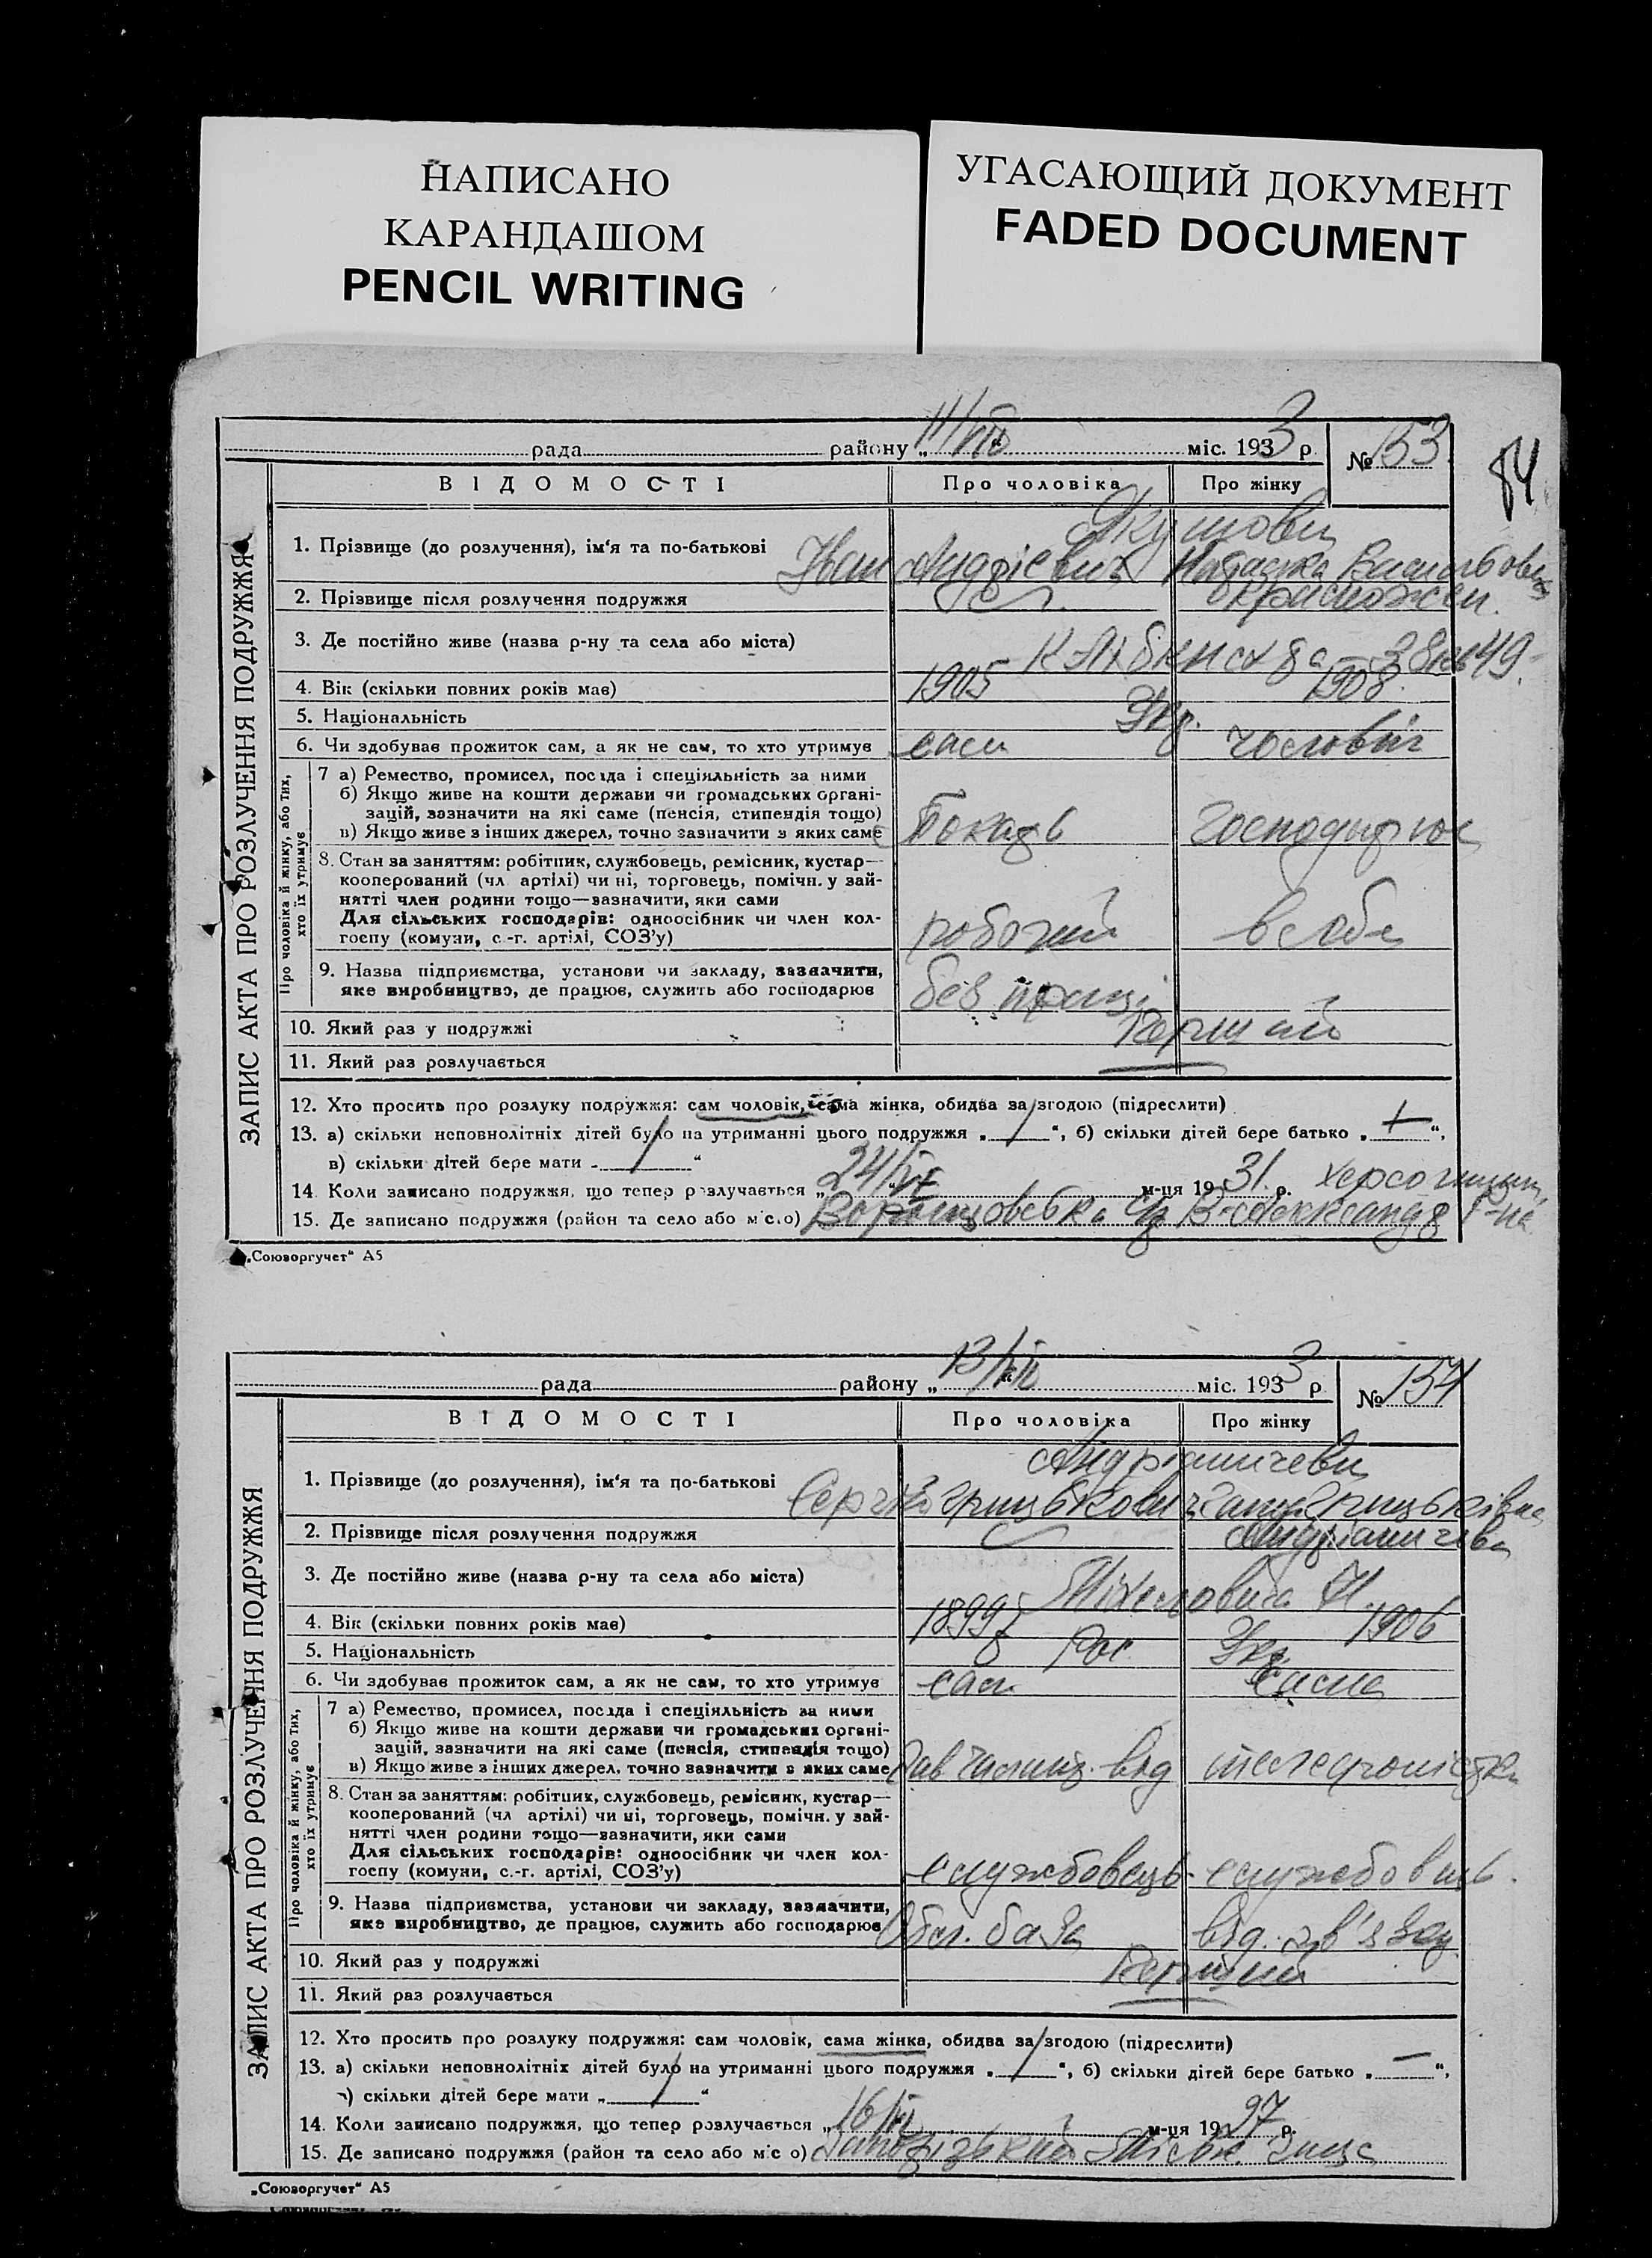 НАПИСАНО
КАРАНДАШОМ
PENCIL WRITING
УГАСАЮЩИЙ ДОКУМЕНТ
FADED DOCUMENT
84
рада району „11/VIII“ міс. 1933 р. № 153
ЗАПИС АКТА ПРО РОЗЛУЧЕННЯ ПОДРУЖЖЯ
ВІДОМОСТІ Про чоловіка Про жінку
1. Прізвище (до розлучення), ім'я та по-батькові
Іван Андрієвич Наташка Васильовна
2. Прізвище після розлучення подружжя
3. Де постійно живе (назва р-ну та села або міста)
4. Вік (скільки повних років має) 1905 1908
5. Національність Укр.
6. Чи здобував прожиток сам, а як не сам, то хто утримує сам чоловік
Про чоловіка й жінку, або тих, хто їх утримує
7 а) Ремество, промисел, посада і спеціяльність за ними
б) Якщо живе на кошти держави чи громадських органі-
зацій, зазначити на які саме (пенсія, стипендія тощо)
в) Якщо живе з інших джерел, точно зазначити з яких саме Токарь
8. Стан за заняттям: робітник, службовець, ремісник, кустар—
кооперований (чл артілі) чи ні, торговець, помічн. у зай-
нятті член родини тощо—зазначити, яки сами
Для сільських господарів: одноосібник чи член кол-
госпу (комуни, с.-г. артілі, СОЗ'у) робочий в себе
9. Назва підприємства, установи чи закладу, зазначити,
яке виробництво, де працює, служить або господарює без праці
10. Який раз у подружжі Перший
11. Який раз розлучається
12. Хто просить про розлуку подружжя: сам чоловік, сама жінка, обидва за згодою (підреслити)
13. а) скільки неповнолітніх дітей було на утриманні цього подружжя „ / “, б) скільки дітей бере батько „ — “,
в) скільки дітей бере мати „ / “
14. Коли записано подружжя, що тепер розлучається „24/VI“ м-ця 1931 р.
15. Де записано подружжя (район та село або місто)
„Союзоргучет“ А5
рада району „13/VIII“ міс. 1933 р № 154
ЗАПИС АКТА ПРО РОЗЛУЧЕННЯ ПОДРУЖЖЯ
ВІДОМОСТІ Про чоловіка Про жінку
1. Прізвище (до розлучення), ім'я та по-батькові
Сергій Грицькович Грицьківна
2. Прізвище після розлучення подружжя
3. Де постійно живе (назва р-ну та села або міста)
4. Вік (скільки повних років має) 1899 1906
5. Національність Рос. Укр.
6. Чи здобував прожиток сам, а як не сам, то хто утримує сам сама
Про чоловіка й жінку, або тих, хто їх утримує
7 а) Ремество, промисел, посада і спеціяльність за ними
б) Якщо живе на кошти держави чи громадських органі-
зацій, зазначити на які саме (пенсія, стипендія тощо)
в) Якщо живе з інших джерел, точно зазначити з яких саме від телефоністка
8. Стан за заняттям: робітник, службовець, ремісник, кустар—
кооперований (чл артілі) чи ні, торговець, помічн. у зай-
нятті член родини тощо—зазначити, яки сами
Для сільських господарів: одноосібник чи член кол-
госпу (комуни, с.-г. артілі, СОЗ'у) службовець службовець.
9. Назва підприємства, установи чи закладу, зазначити,
яке виробництво, де працює, служить або господарює база від. зв'язку
10. Який раз у подружжі Перший
11. Який раз розлучається
12. Хто просить про розлуку подружжя: сам чоловік, сама жінка, обидва за згодою (підреслити)
13. а) скільки неповнолітніх дітей було на утриманні цього подружжя „ / “, б) скільки дітей бере батько „ — “,
в) скільки дітей бере мати „ / “
14. Коли записано подружжя, що тепер розлучається м-ця 19 р.
15. Де записано подружжя (район та село або м с о)
„Союзоргучет“ А5